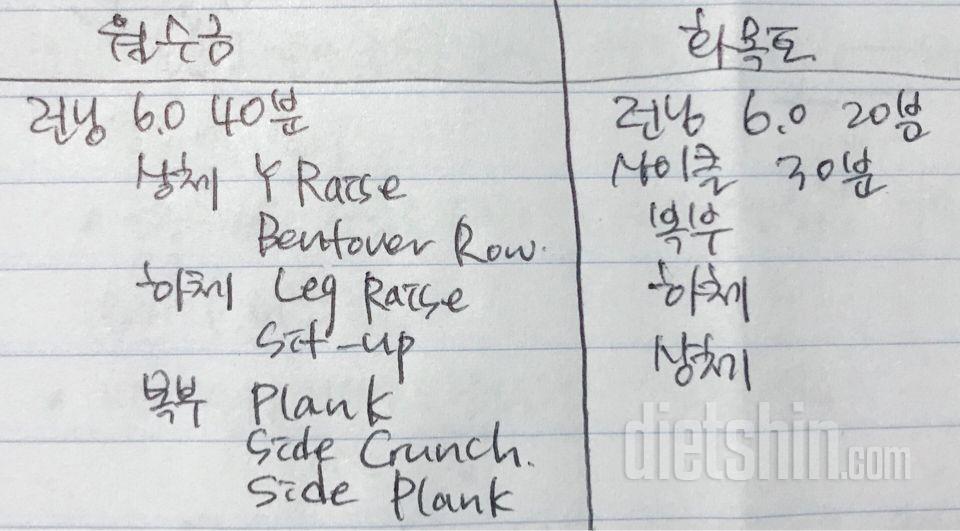 월수금
런닝 6.0 40분
상체 Y Raise
Bentover Row.
하체 Leg Raise
Sit-up
복부 Plank
Side Crunch.
Side Plank
화목토
런닝 6.0 20분
사이클 30분
복부
하체
상체
dietshin.com